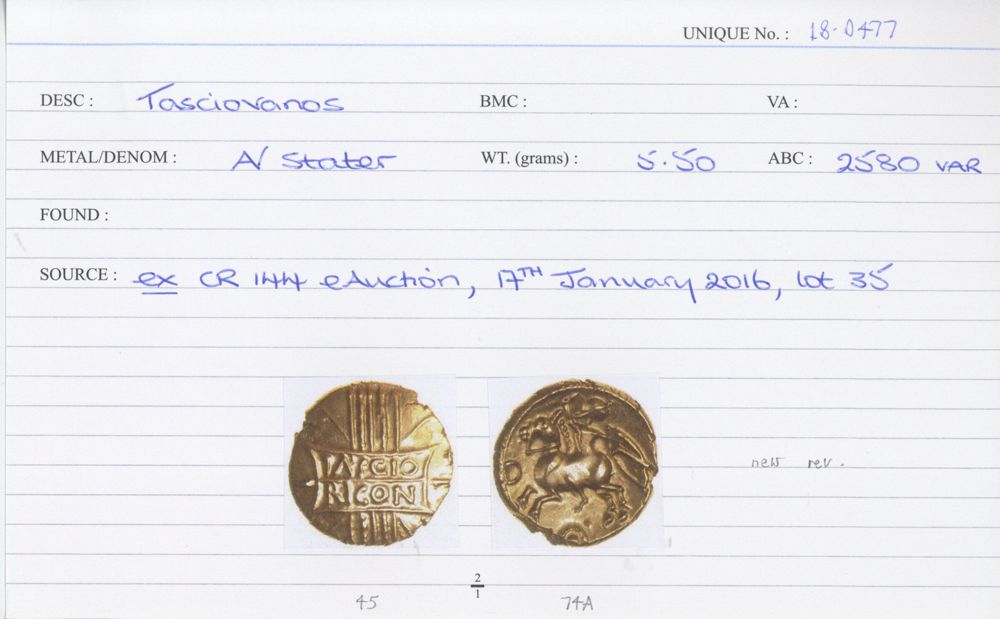 UNIQUE No. : 18-0477
DESC : Tasciovanos BMC : VA :
METAL/DENOM : A/ Stater WT. (grams) : 5.50 ABC : 2580 VAR
FOUND :
SOURCE : ex CR 144 eAuction, 17TH January 2016, lot 35
RICON
new rev.
2
1
45 74A